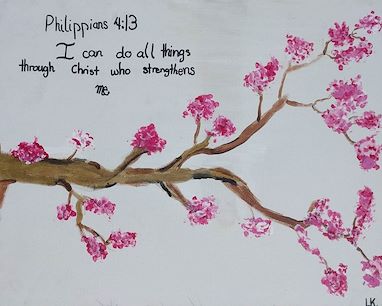 Philippians 4:13
I can do all things
through Christ who strengthens
me.
L.K.